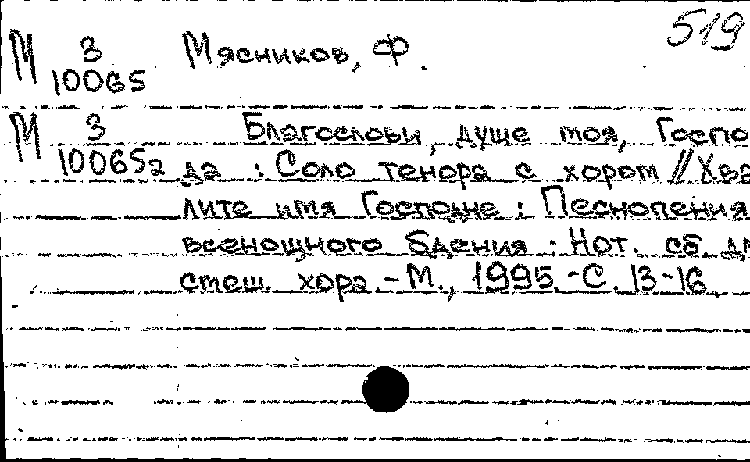 519
М З Мясников, Ф.
10065
М З Благослови, душе моя, Госпо
10065₂ да : Соло тенора с хором // Хва
лите имя Господне : Песнопения
всенощного бдения : Нот. сб. дл
смеш. хора. - М., 1995. - С. 13-16